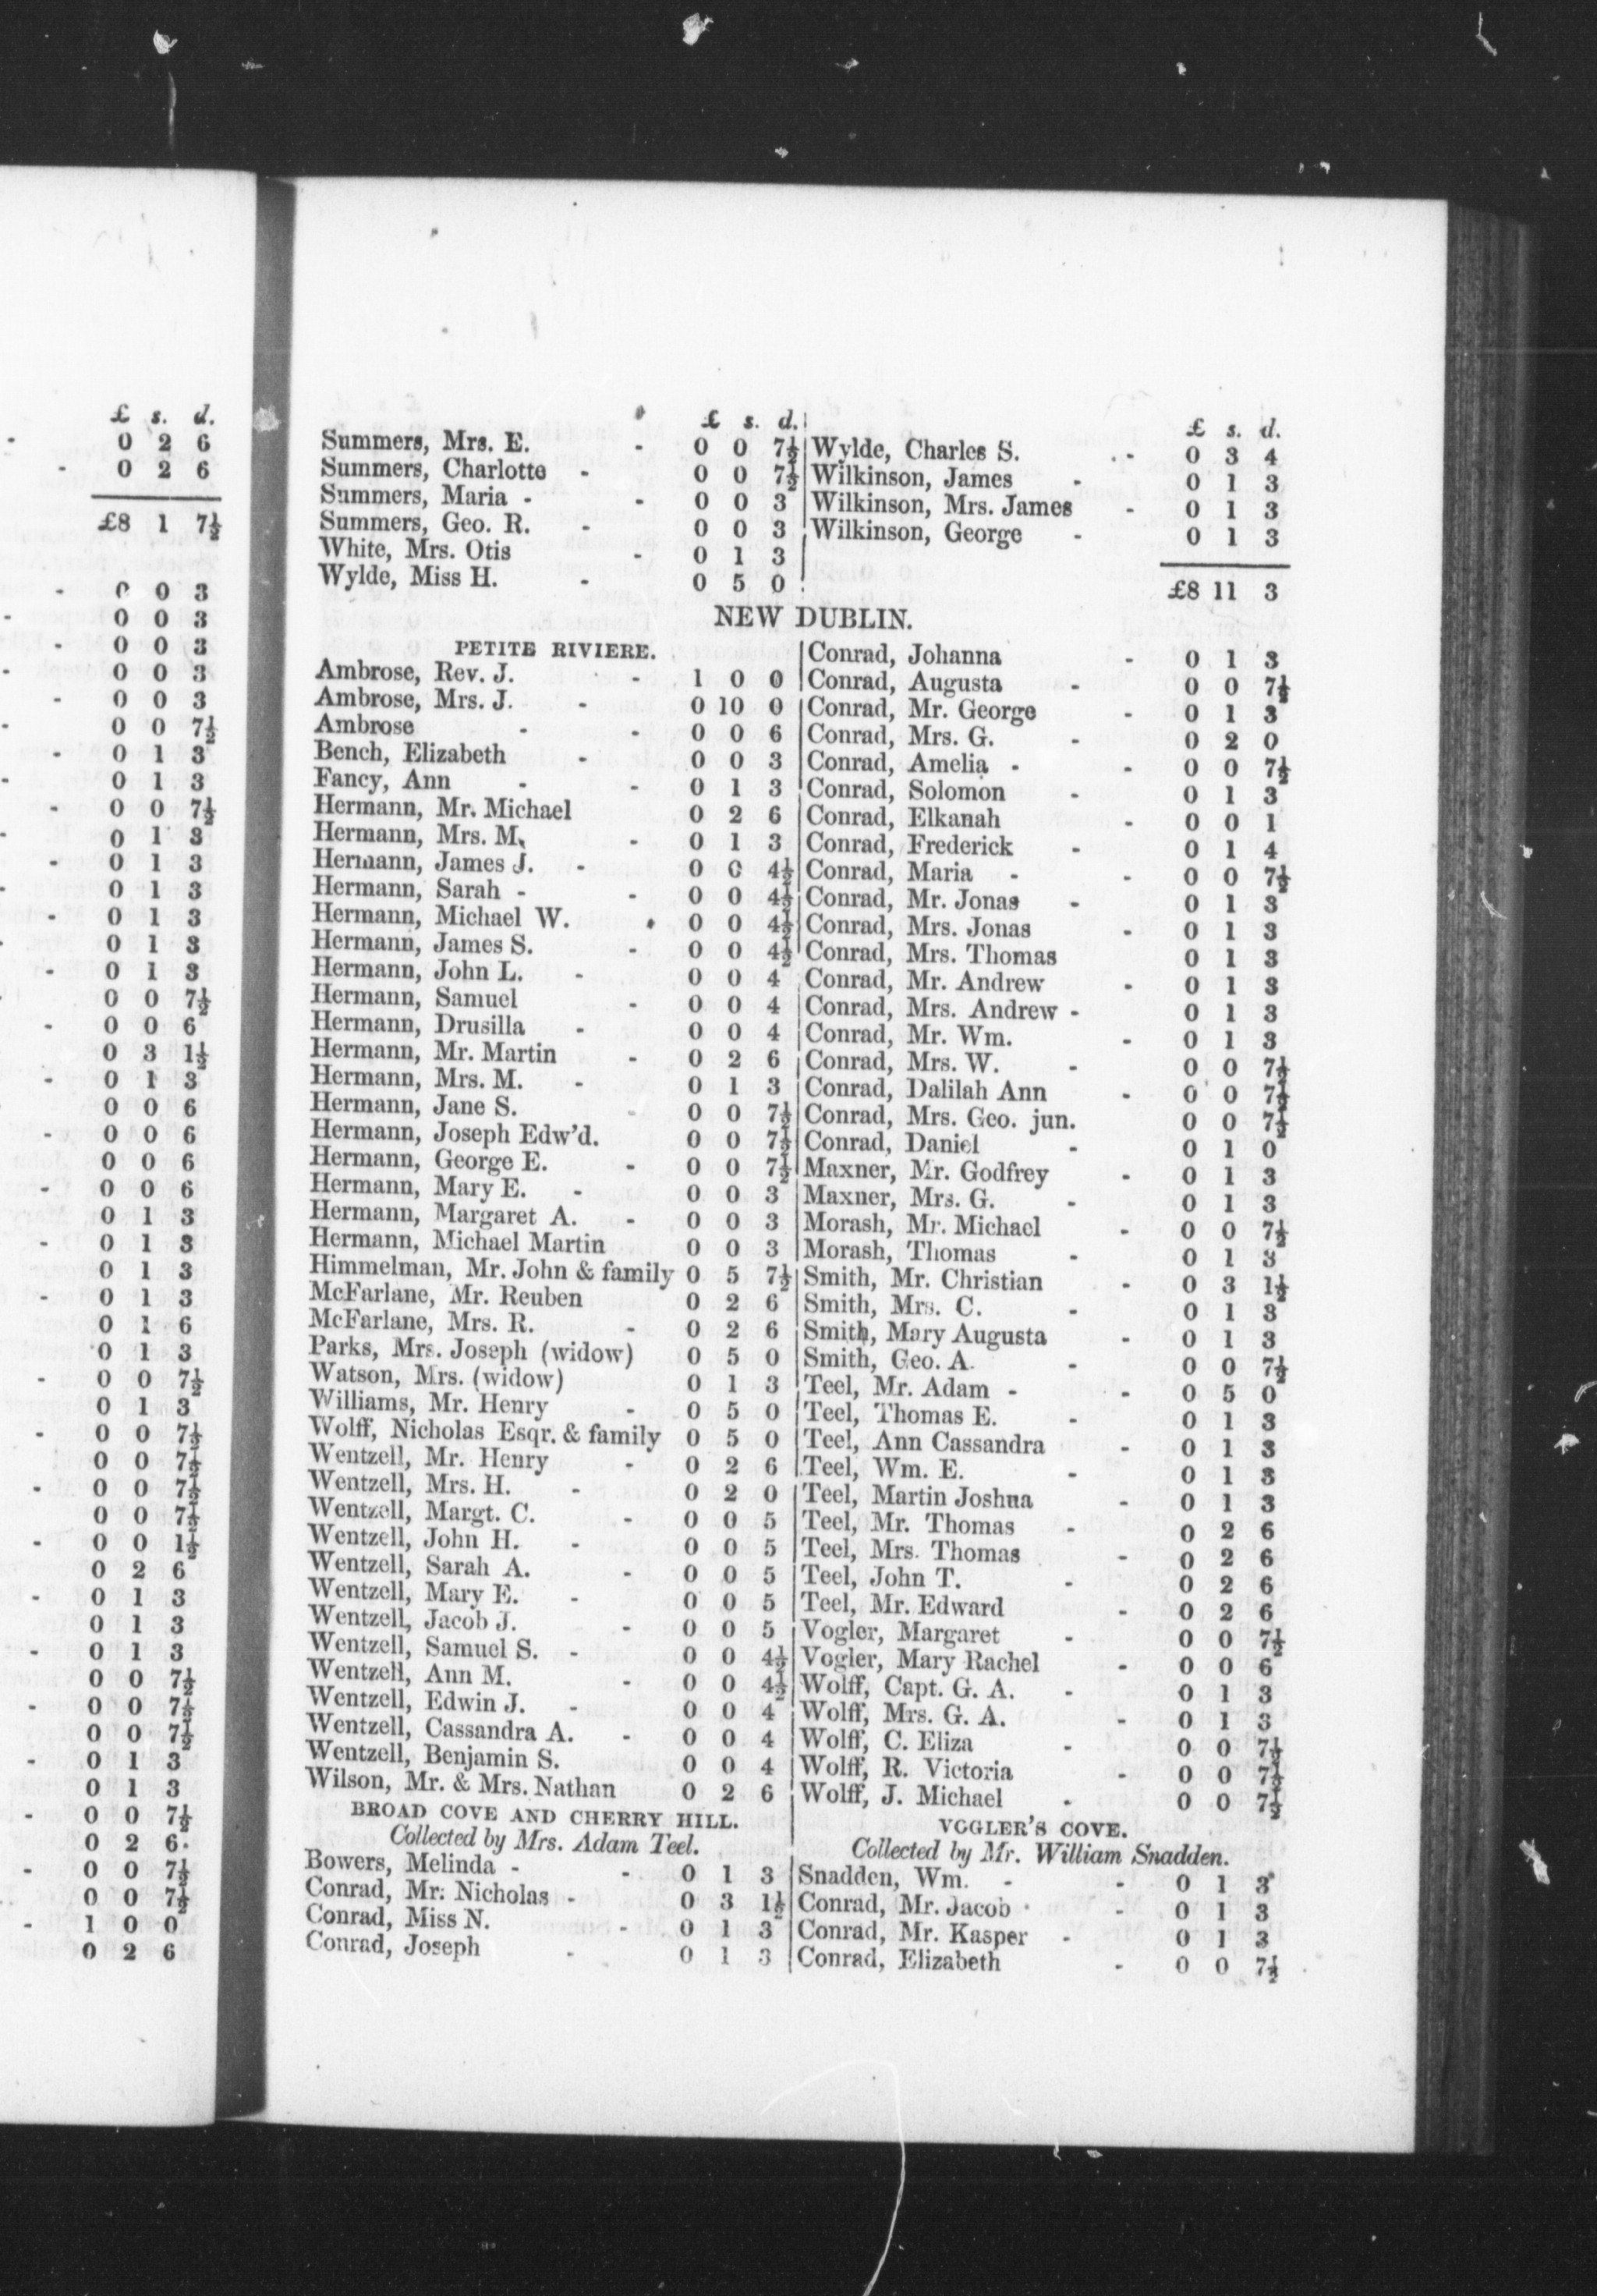 £ s. d.
0 2 6
0 2 6
£8 1 7½
0 0 3
0 0 3
0 0 3
0 0 3
0 0 3
0 0 7½
0 1 3
0 1 3
0 0 7½
0 1 3
0 1 3
0 1 3
0 1 3
0 1 3
0 1 3
0 0 7½
0 0 6
0 3 1½
0 1 3
0 0 6
0 0 6
0 0 6
0 0 6
0 1 3
0 1 3
0 1 3
0 1 3
0 1 6
0 1 3
0 0 7½
0 1 3
0 0 7½
0 0 7½
0 0 7½
0 0 7½
0 0 1½
0 2 6
0 1 3
0 1 3
0 1 3
0 0 7½
0 0 7½
0 0 7½
0 1 3
0 1 3
0 0 7½
0 2 6
0 0 7½
0 0 7½
1 0 0
0 2 6
£ s. d.
Summers, Mrs. E. - 0 0 7½
Summers, Charlotte - 0 0 7½
Summers, Maria - - 0 0 3
Summers, Geo. R. - 0 0 3
White, Mrs. Otis - 0 1 3
Wylde, Miss H. - 0 5 0
£ s. d.
Wylde, Charles S. - 0 3 4
Wilkinson, James - 0 1 3
Wilkinson, Mrs. James - 0 1 3
Wilkinson, George - 0 1 3
£8 11 3
NEW DUBLIN.
PETITE RIVIERE.
Ambrose, Rev. J. - 1 0 0
Ambrose, Mrs. J. - 0 10 0
Ambrose - - 0 0 6
Bench, Elizabeth - 0 0 3
Fancy, Ann - - 0 1 3
Hermann, Mr. Michael 0 2 6
Hermann, Mrs. M. - 0 1 3
Hermann, James J. - 0 0 4½
Hermann, Sarah - - 0 0 4½
Hermann, Michael W. - 0 0 4½
Hermann, James S. - 0 0 4½
Hermann, John L. - 0 0 4
Hermann, Samuel - 0 0 4
Hermann, Drusilla - 0 0 4
Hermann, Mr. Martin - 0 2 6
Hermann, Mrs. M. - 0 1 3
Hermann, Jane S. - 0 0 7½
Hermann, Joseph Edw'd. 0 0 7½
Hermann, George E. - 0 0 7½
Hermann, Mary E. - 0 0 3
Hermann, Margaret A. - 0 0 3
Hermann, Michael Martin 0 0 3
Himmelman, Mr. John & family 0 5 7½
McFarlane, Mr. Reuben 0 2 6
McFarlane, Mrs. R. - 0 2 6
Parks, Mrs. Joseph (widow) 0 5 0
Watson, Mrs. (widow) 0 1 3
Williams, Mr. Henry - 0 5 0
Wolff, Nicholas Esqr. & family 0 5 0
Wentzell, Mr. Henry - 0 2 6
Wentzell, Mrs. H. - 0 2 0
Wentzell, Margt. C. - 0 0 5
Wentzell, John H. - 0 0 5
Wentzell, Sarah A. - 0 0 5
Wentzell, Mary E. - 0 0 5
Wentzell, Jacob J. - 0 0 5
Wentzell, Samuel S. - 0 0 4½
Wentzell, Ann M. - 0 0 4½
Wentzell, Edwin J. - 0 0 4
Wentzell, Cassandra A. - 0 0 4
Wentzell, Benjamin S. 0 0 4
Wilson, Mr. & Mrs. Nathan 0 2 6
BROAD COVE AND CHERRY HILL.
Collected by Mrs. Adam Teel.
Bowers, Melinda - - 0 1 3
Conrad, Mr. Nicholas - 0 3 1½
Conrad, Miss N. - 0 1 3
Conrad, Joseph - 0 1 3
Conrad, Johanna - 0 1 3
Conrad, Augusta - 0 0 7½
Conrad, Mr. George - 0 1 3
Conrad, Mrs. G. - 0 2 0
Conrad, Amelia - - 0 0 7½
Conrad, Solomon - 0 1 3
Conrad, Elkanah - 0 0 1
Conrad, Frederick - 0 1 4
Conrad, Maria - - 0 0 7½
Conrad, Mr. Jonas - 0 1 3
Conrad, Mrs. Jonas - 0 1 3
Conrad, Mrs. Thomas 0 1 3
Conrad, Mr. Andrew - 0 1 3
Conrad, Mrs. Andrew - 0 1 3
Conrad, Mr. Wm. - 0 1 3
Conrad, Mrs. W. - 0 0 7½
Conrad, Dalilah Ann - 0 0 7½
Conrad, Mrs. Geo. jun. 0 0 7½
Conrad, Daniel - 0 1 0
Maxner, Mr. Godfrey - 0 1 3
Maxner, Mrs. G. - 0 1 3
Morash, Mr. Michael - 0 0 7½
Morash, Thomas - 0 1 3
Smith, Mr. Christian - 0 3 1½
Smith, Mrs. C. - 0 1 3
Smith, Mary Augusta - 0 1 3
Smith, Geo. A. - 0 0 7½
Teel, Mr. Adam - - 0 5 0
Teel, Thomas E. - 0 1 3
Teel, Ann Cassandra - 0 1 3
Teel, Wm. E. - 0 1 3
Teel, Martin Joshua - 0 1 3
Teel, Mr. Thomas - 0 2 6
Teel, Mrs. Thomas - 0 2 6
Teel, John T. - 0 2 6
Teel, Mr. Edward - 0 2 6
Vogler, Margaret - 0 0 7½
Vogler, Mary Rachel - 0 0 6
Wolff, Capt. G. A. - 0 1 3
Wolff, Mrs. G. A. - 0 1 3
Wolff, C. Eliza - 0 0 7½
Wolff, R. Victoria - 0 0 7½
Wolff, J. Michael - 0 0 7½
VOGLER'S COVE.
Collected by Mr. William Snadden.
Snadden, Wm. - - 0 1 3
Conrad, Mr. Jacob - 0 1 3
Conrad, Mr. Kasper - 0 1 3
Conrad, Elizabeth - 0 0 7½